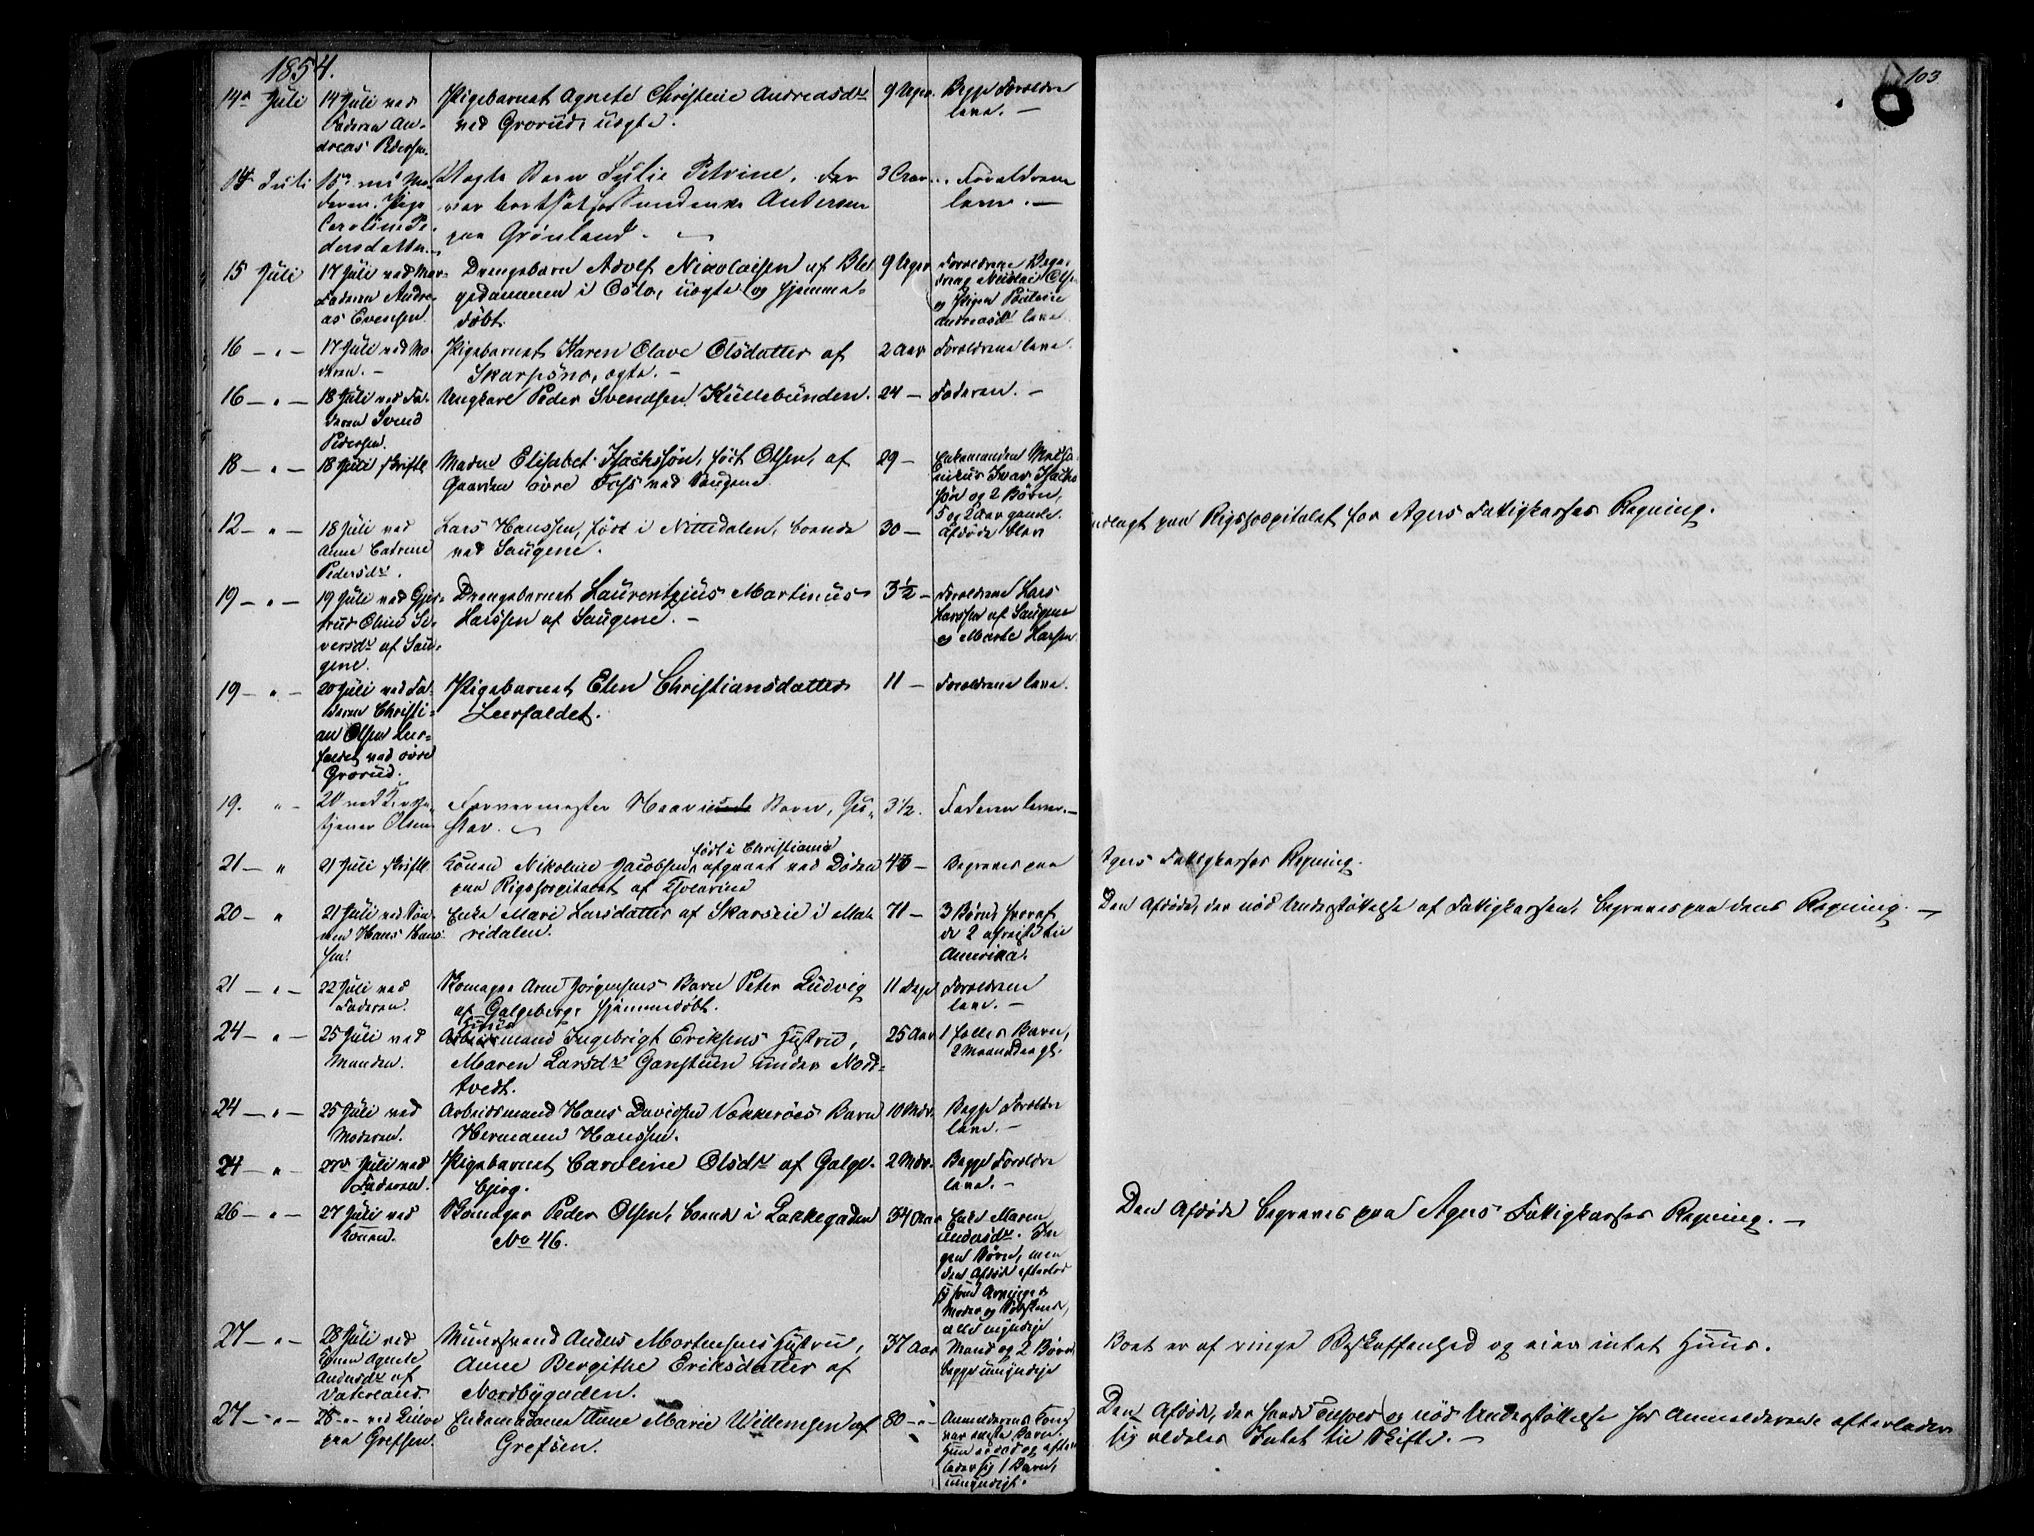 1854.
103
14de Juli
14 Juli ved
Faderen An-
dreas Pedersen.
Pigebarnet Agnete Christine Andreasdr
ved Grorud, uægte.
9 Uger.
Begge Forældre
leve. —
14 Juli
15de ved Mo-
deren, Pige
Caroline Pe-
dersdatter.
Uægte Barn Julie Petrine, der
var bortsat hos Andersen
paa Grønland. —
3 Aar
Forældrene
lever. —
15 Juli
17 Juli ved Mor-
faderen Andre-
as Evensen.
Drengebarn Adolf Nikolaisen af Ble-
gedammen i Oslo, uægte og hjemme-
døbt.
9 Uger
Forældrene
Nicolai Olsen
og Pigen Pauline
Andreasdr leve.
16 — " —
17 Juli ved Mo-
deren. —
Pigebarnet Karen Olave Olsdatter af
Skarpsno, ægte. —
2 Aar
Forældrene leve.
16 — " —
18 Juli ved Fa-
deren Svend
Pedersen.
Ungkarl Peder Svendsen Kullebunden.
24 —
Faderen. —
18 — " —
18 Juli skriftl.
Madme Elisabet Isachssøn, født Olsen, af
Gaarden øvre Foss ved Saugene.
29 —
Enkemanden
Ivar Isachs-
søn og 2 Børn,
5 og 2 Aar gamle.
12 — " —
18 Juli ved
Anne Catrine
Pedersdr.
Lars Hanssen, født i Nittedalen, boende
ved Saugene.
30 —
Afdøde blev
indlagt paa Rigshospitalet for Agers Fattigkasses Regning.
19 — " —
19 Juli ved Gjer-
trud Oline Si-
versdr af Sau-
gene.
Drengebarnet Laurentzius Martinus
Larssen af Saugene. —
3½ —
Forældrene Lars
Larssen af Saugene
og Marte Larsen.
19 — " —
20 Juli ved Fa-
deren Christi-
an Olsen Leer-
faldet ved øvre
Grorud.
Pigebarnet Elen Christiansdatter
Leerfaldet.
11 —
Forældrene leve.
19. " —
20 ved Kirke-
tjener Olsen
Farvermester Barn, Gu-
stav.
3½.
Faderen lever. —
21 — "
21 Juli skriftl.
født i Christiania
Konen Nikoline Jacobsen, afgaaet ved Døden
paa Rigshospitalet af Cholerine
43 —
Begraves paa
Agers Fattigkasses Regning.
20 — "
21 Juli ved Søn-
nen Hans Hans-
sen.
Enke Mari Larsdatter af Skarseie i Ma-
ridalen.
71 —
3 Børn, hvoraf
de 2 afreiste til
Amerika.
Den Afdøde, der nød Understøttelse af Fattigkassen, begraves paa dens Regning. —
21 — " —
22 Juli ved
Faderen.
Skomager Arne Jørgensens Barn Peter Ludvig
af Galgeberg, hjemmedøbt.
11 Dage
Forældrene
leve. —
24 — " —
25 Juli ved
Manden.
Huus
Arbeidsmand Ingebrigt Eriksens Hustru,
Maren Larsdr Ganstuen under Nord-
tvedt.
25 Aar
1 fælles Barn,
2 Maaneder gl.
24 — " —
25 Juli ved
Moderen.
Arbeidsmand Hans Davidsen Vækkerøes Barn
Hermann Hanssen.
10 Mdr.
Begge Forældre
leve. —
24 — "
27de Juli ved
Faderen.
Pigebarnet Caroline Olsdr af Galge-
bjerg.
2 Mdr.
Begge Forældre
leve. —
26 — " —
27 Juli ved
Konen.
Peder Olsen, boende i Lakkegaden
No 46.
34 Aar
Enke Maren
Andersdr. In-
gen Børn, men
den Afdøde efterlod
sig som Arvinger
Moder og Søskende,
alle myndige
Den Afdøde begraves paa Agers Fattigkasses Regning. —
27 — " —
28 Juli ved
Konen Agnete
Andersdr af
Vaterland.
Muursvend Anders Mortensens Hustru,
Anne Bergithe Eriksdatter af
Nordbygaden.
37 Aar
Mand og 2 Børn
begge umyndige
Boet er af ringe Beskaffenhed og eier intet Huus.
27 — " —
28 — " — ved
paa Grefsen.
Anne Marie Willemsen af
Grefsen.
80 — " —
Anmelderens Kone
var eneste Barn.
Hun er død og efter-
lader sig 1 Barn,
umyndigt.
Den Afdøde, der havde og nød Understøttelse hos Anmelderen efterlader
sig aldeles Intet til Skifte. —